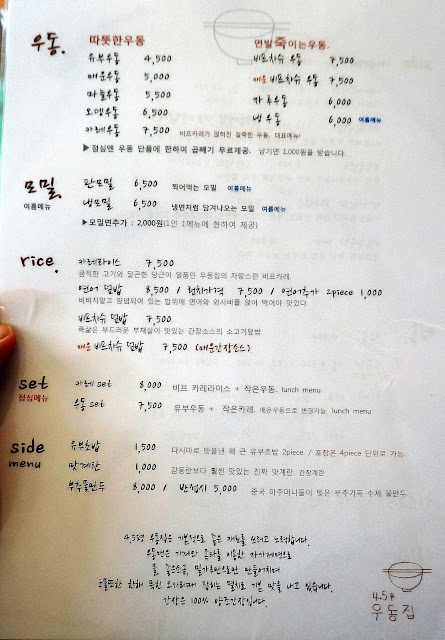 우동.
따뜻한우동
유부우동 4,500
매운우동 5,000
따늘우동 5,500
오뎅우동 6,500
카레우동 7,500 비프카레가 얹혀진 걸쭉한 우동, 대표메뉴!
면발죽이는우동.
비프차슈 우동 7,500
매운 비프차슈 우동 7,500
가루우동 6,000
냉우동 6,000 여름메뉴
▶점심엔 우동 단품에 한하여 곱빼기 무료제공. 남기면 1,000원을 받습니다.
모밀.
여름메뉴
판모밀 6,500 찍어먹는 모밀 여름메뉴
냉모밀 6,500 냉면처럼 담겨나오는 모밀 여름메뉴
▶모밀면추가 : 2,000원(1인 1메뉴에 한하여 제공)
rice.
카레라이스 7,500
큼직한 고기와 달큰한 당근이 일품인 우동집의 자랑스런 비프카레.
연어 덮밥 8,500 / 런치가격 7,500 / 연어추가 2piece 1,000
비비지말고 양념되어 있는 밥위에 연어와 와사비를 얹어 먹어야 맛있다.
비프차슈 덮밥 7,500
푹삶은 부드러운 부채살이 맛있는 간장소스의 소고기덮밥.
매운 비프차슈 덮밥 7,500 (매운간장소스)
set
점심메뉴
카레 set 8,000 비프 카레라이스 + 작은우동. lunch menu
우동 set 7,500 유부우동 + 작은카레. 매운우동으로 변경가능. lunch menu
side
menu
유부초밥 1,500 다시마로 맛을낸 왜 큰 유부초밥 2piece / 포장은 4piece 단위로 가능.
맛계란 1,000 감동란보다 훨씬 맛있는 진짜 맛계란. 간장계란
부추물만두 8,000 / 반접시 5,000 중국 아주머니들이 빚은 부추가득 수제 물만두.
4.5평 우동집은 기본적으로 좋은 재료를 쓰려고 노력합니다.
우동면은 기계와 족타를 이용한 자가제면으로
물, 좋은소금, 밀가루만으로만 만들어지며
오롯또한 한해 묵힌 오사리때 잡히는 멸치로 기본 맛을 내고 있습니다.
간장은 100% 양조간장입니다.
4.5평
우동집